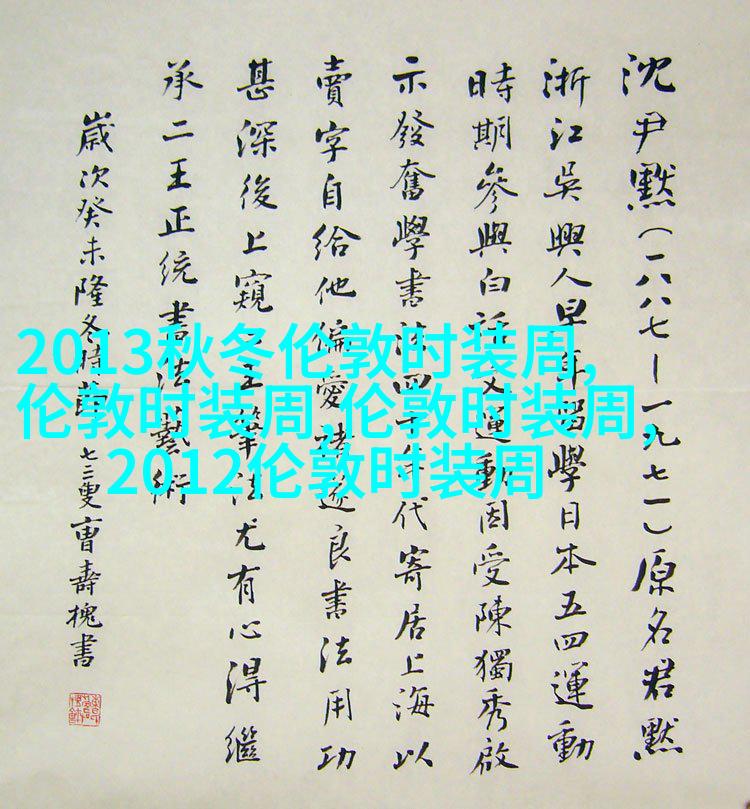 沈尹默(一八八七—一九七一)原名君默
浙江吳興人早年留學日本五四運動
時期參與白話文運動因受陳獨秀啟
示發奮學書法四十年代寄居上海以
賣字自給他偏愛褚遂良書法用功
甚深後上窺二王筆法尤有心得繼
承二王正統書法藝術
歲次癸未隆冬時節七三叟曹壽槐書
2013秋冬伦敦时装周,
伦敦时装周,伦敦时装周,
2012伦敦时装周